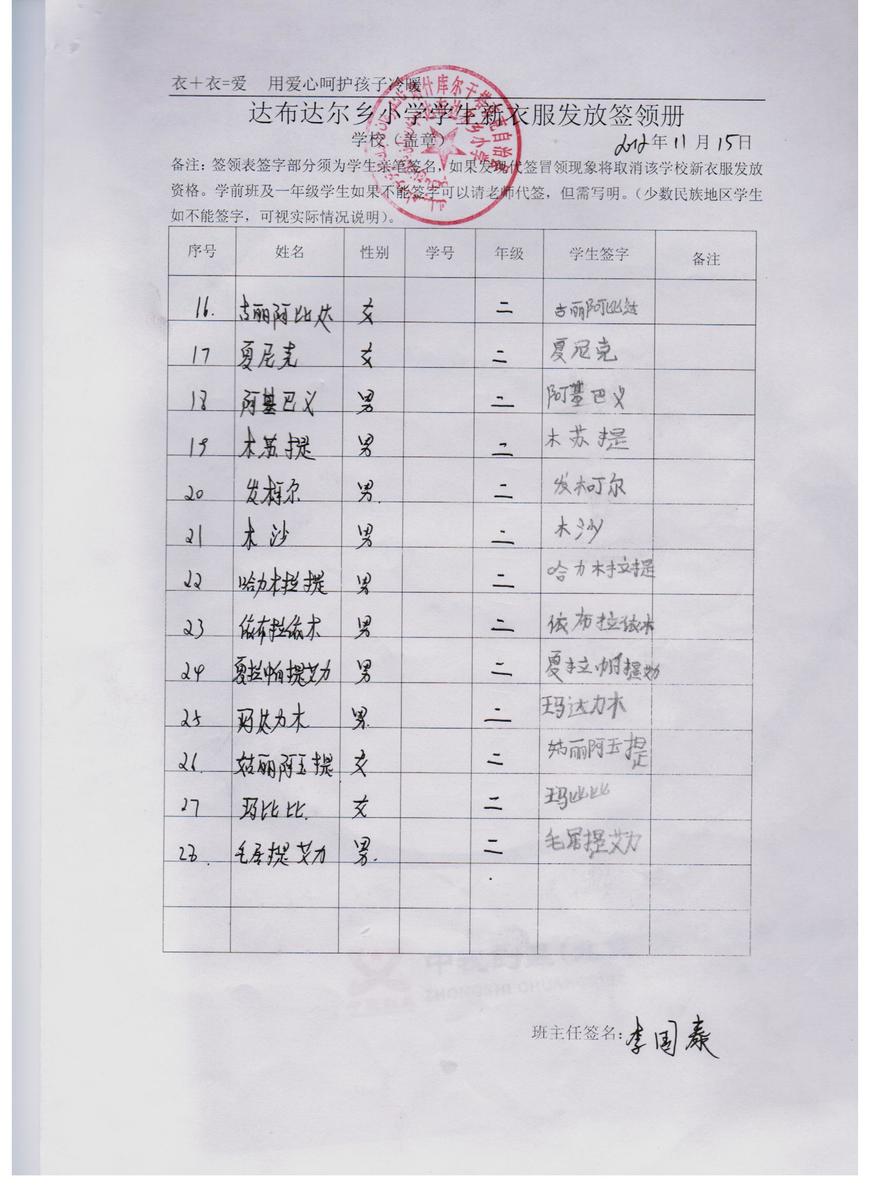 衣+衣=爱 用爱心呵护孩子冷暖
达布达尔乡小学学生新衣服发放签领册
学校（盖章） 2012年11月15日
备注：签领表签字部分须为学生亲笔签名，如果发现代签冒领现象将取消该学校新衣服发放
资格。学前班及一年级学生如果不能签字可以请老师代签，但需写明。（少数民族地区学生
如不能签字，可视实际情况说明）。
序号 姓名 性别 学号 年级 学生签字 备注
16. 古丽阿比达 女 二 古丽阿比达
17 夏尼克 女 二 夏尼克
18 阿基巴义 男 二 阿基巴义
19 木苏提 男 二 木苏提
20 发柯尔 男. 二 发柯尔
21 木沙 男 二 木沙
22 哈力木拉提 男 二 哈力木拉提
23 依布拉依木 男 二 依布拉依木
24 夏拉帕提艾力 男 二 夏拉帕提艾力
25 玛达力木 男. 二 玛达力木
26. 姑丽阿玉提 女 二 姑丽阿玉提
27 玛比比. 女 二 玛比比
28. 提艾力 男. 二 提艾力
班主任签名：李国泰